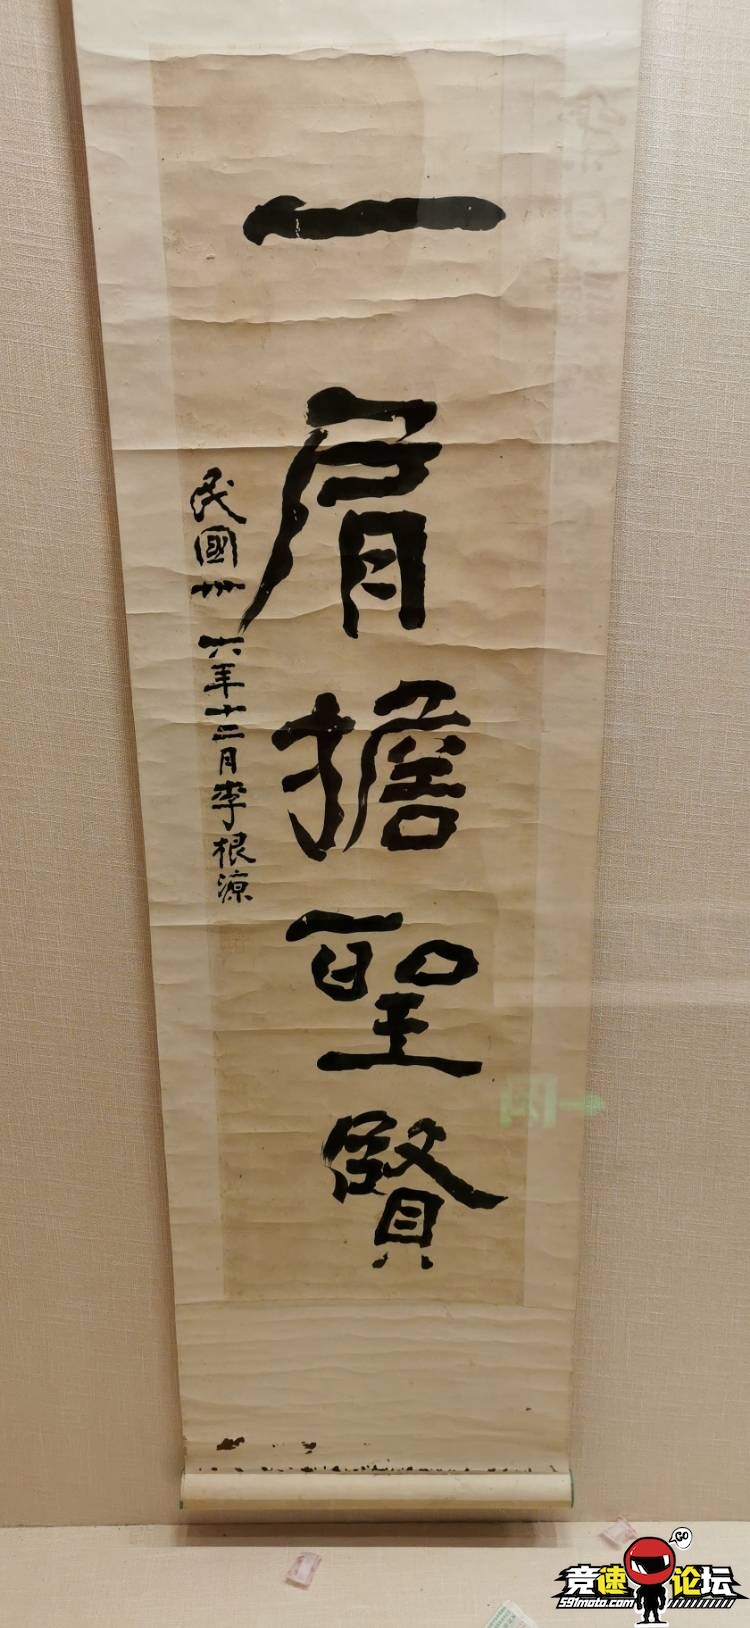 一肩擔聖賢
民國卅六年十二月李根源
GO
竞速论坛
591moto.com